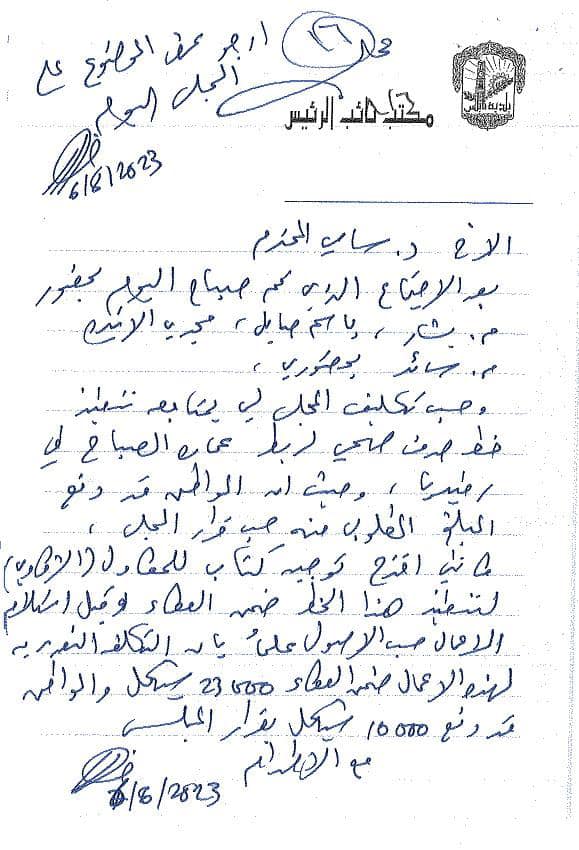 محمد ١٦ ارجو عرض الموضوع على
المجلس اليوم
6/8/2023
بلدية نابلس
مكتب نائب الرئيس
الاخ د. سامي المحترم
بعد الاجتماع الذي تم صباح اليوم بحضور
م. بشار ، باسم صايل ، مجدي
م. سائد بحضوري ،
وحسب تكليف المجلس لي بمتابعة تنفيذ
خط صرف صحي لربط عمارة الصباح في
رفيديا ، وحيث ان المواطن قد دفع
المبلغ المطلوب منه حسب قرار المجلس ،
فانني اقترح توجيه كتاب للمقاول
لتنفيذ هذا الخط ضمن العطاء وقبل استلام
الاعمال حسب الاصول علماً بان التكلفة التقديرية
لهذه الاعمال ضمن العطاء 23000 شيكل والمواطن
قد دفع 10000 شيكل بقرار المجلس
مع الاحترام
6/8/2023